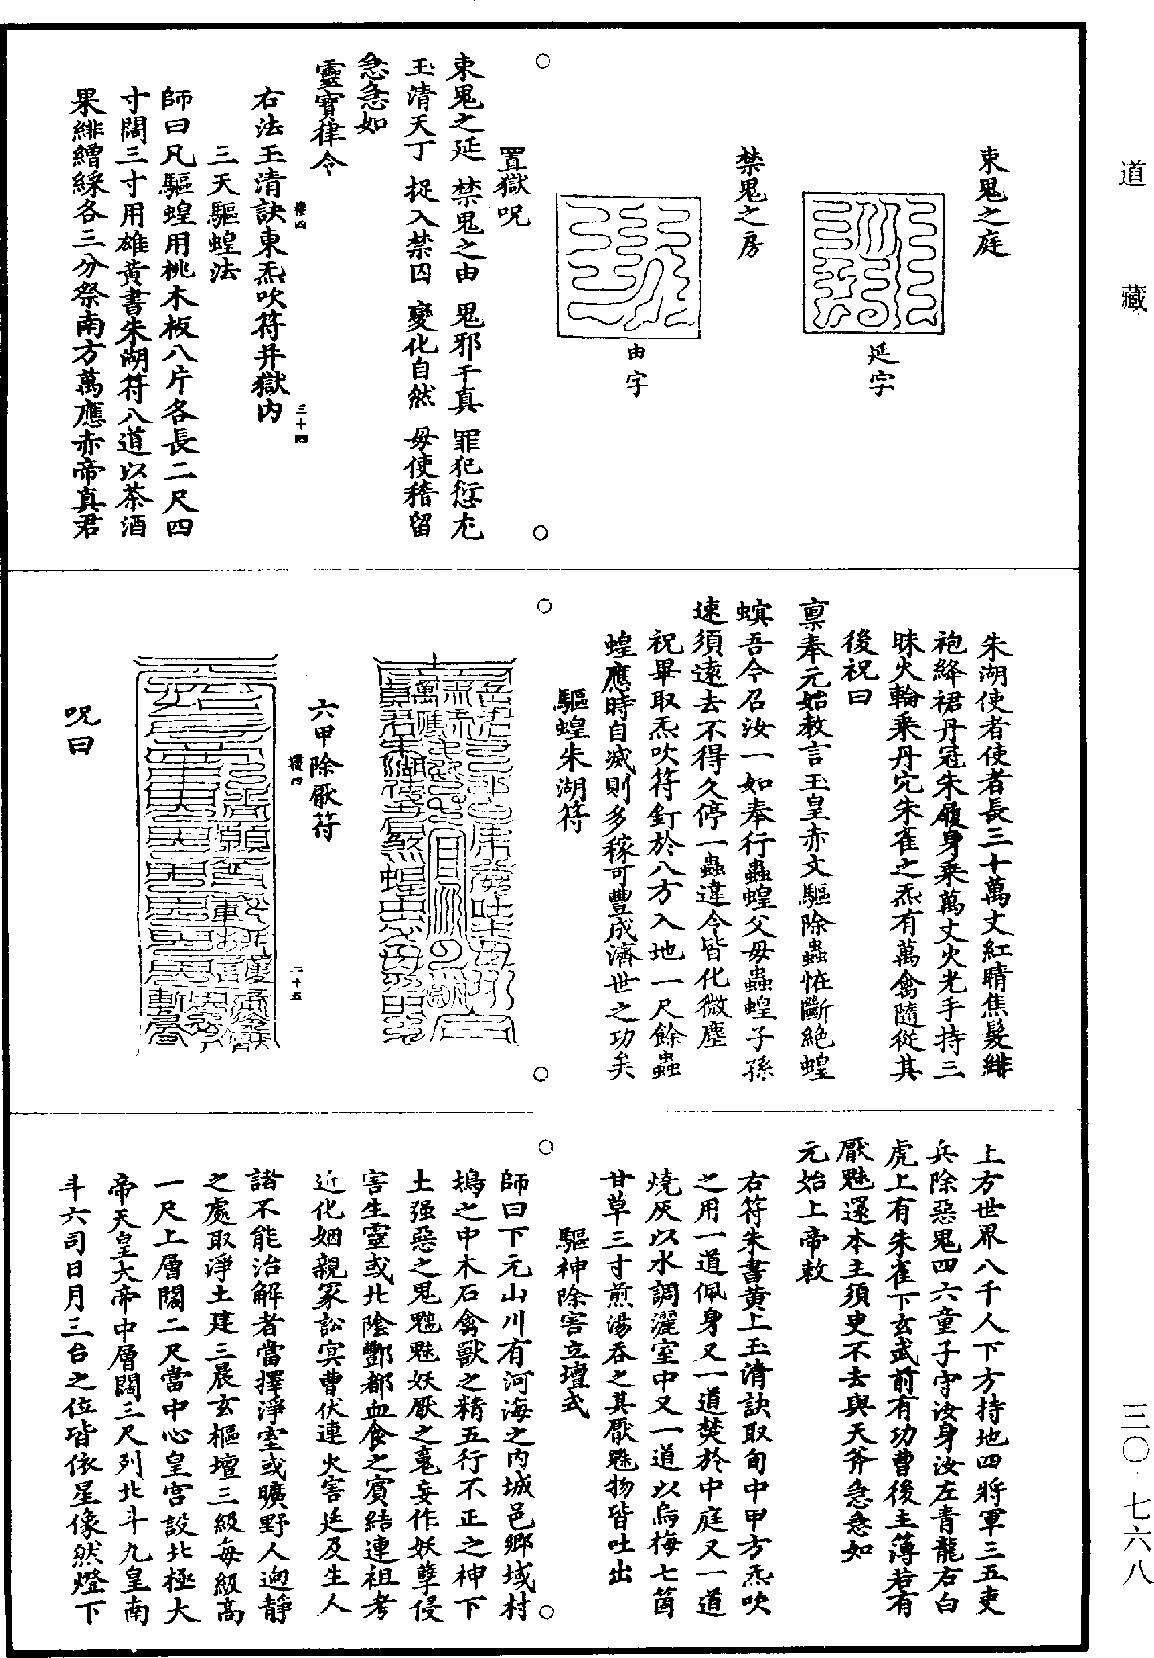 道藏
三〇·七六八
束鬼之庭
延字
禁鬼之房
由字
置獄呪
束鬼之延 禁鬼之由 鬼邪干真 罪犯愆尤
玉清天丁 捉入禁囚 變化自然 毋使稽留
急急如
靈寶律令
右法玉清訣東炁吹符井獄内
三十四
三天驅蝗法
師曰凡驅蝗用桃木板八片各長二尺四
寸闊三寸用雄黃書朱湖符八道以茶酒
果緋繒綵各三分祭南方萬應赤帝真君
朱湖使者使者長三十萬丈紅睛焦髮緋
袍絳裙丹冠朱履身乘萬丈火光手持三
昧火輪乘丹穴朱雀之炁有萬禽隨從其
後祝曰
稟奉元始敕言玉皇赤文驅除蟲怪斷絶蝗
螟吾今召汝一如奉行蟲蝗父母蟲蝗子孫
速須遠去不得久停一蟲違令皆化微塵
祝畢取炁吹符釘於八方入地一尺餘蟲
蝗應時自滅則多稼可豐成濟世之功矣
驅蝗朱湖符
六甲除厭符
二十五
呪曰
上方世界八千人下方持地四將軍三五吏
兵除惡鬼四六童子守汝身汝左青龍右白
虎上有朱雀下玄武前有功曹後主薄若有
厭魅還本主須臾不去與天斧急急如
元始上帝敕
右符朱書黄上玉清訣取旬中甲方炁吹
之用一道佩身又一道焚於中庭又一道
燒灰以水調灑室中又一道以烏梅七箇
甘草三寸煎湯吞之其厭魅物皆吐出
驅神除害立壇式
師曰下元山川有河海之内城邑鄉域村
塢之中木石禽獸之精五行不正之神下
土强惡之鬼魑魅妖厭之鬼妄作妖孽侵
害生靈或北陰酆都血食之賓結連祖考
近化姻親冢訟冥曹伏連火害廷及生人
諸不能治解者當擇淨室或曠野人迹靜
之處取淨土建三晨玄樞壇三級每級高
一尺上層闊二尺當中心皇宫設北極大
帝天皇大帝中層闊三尺列北斗九皇南
斗六司日月三台之位皆依星像然燈下